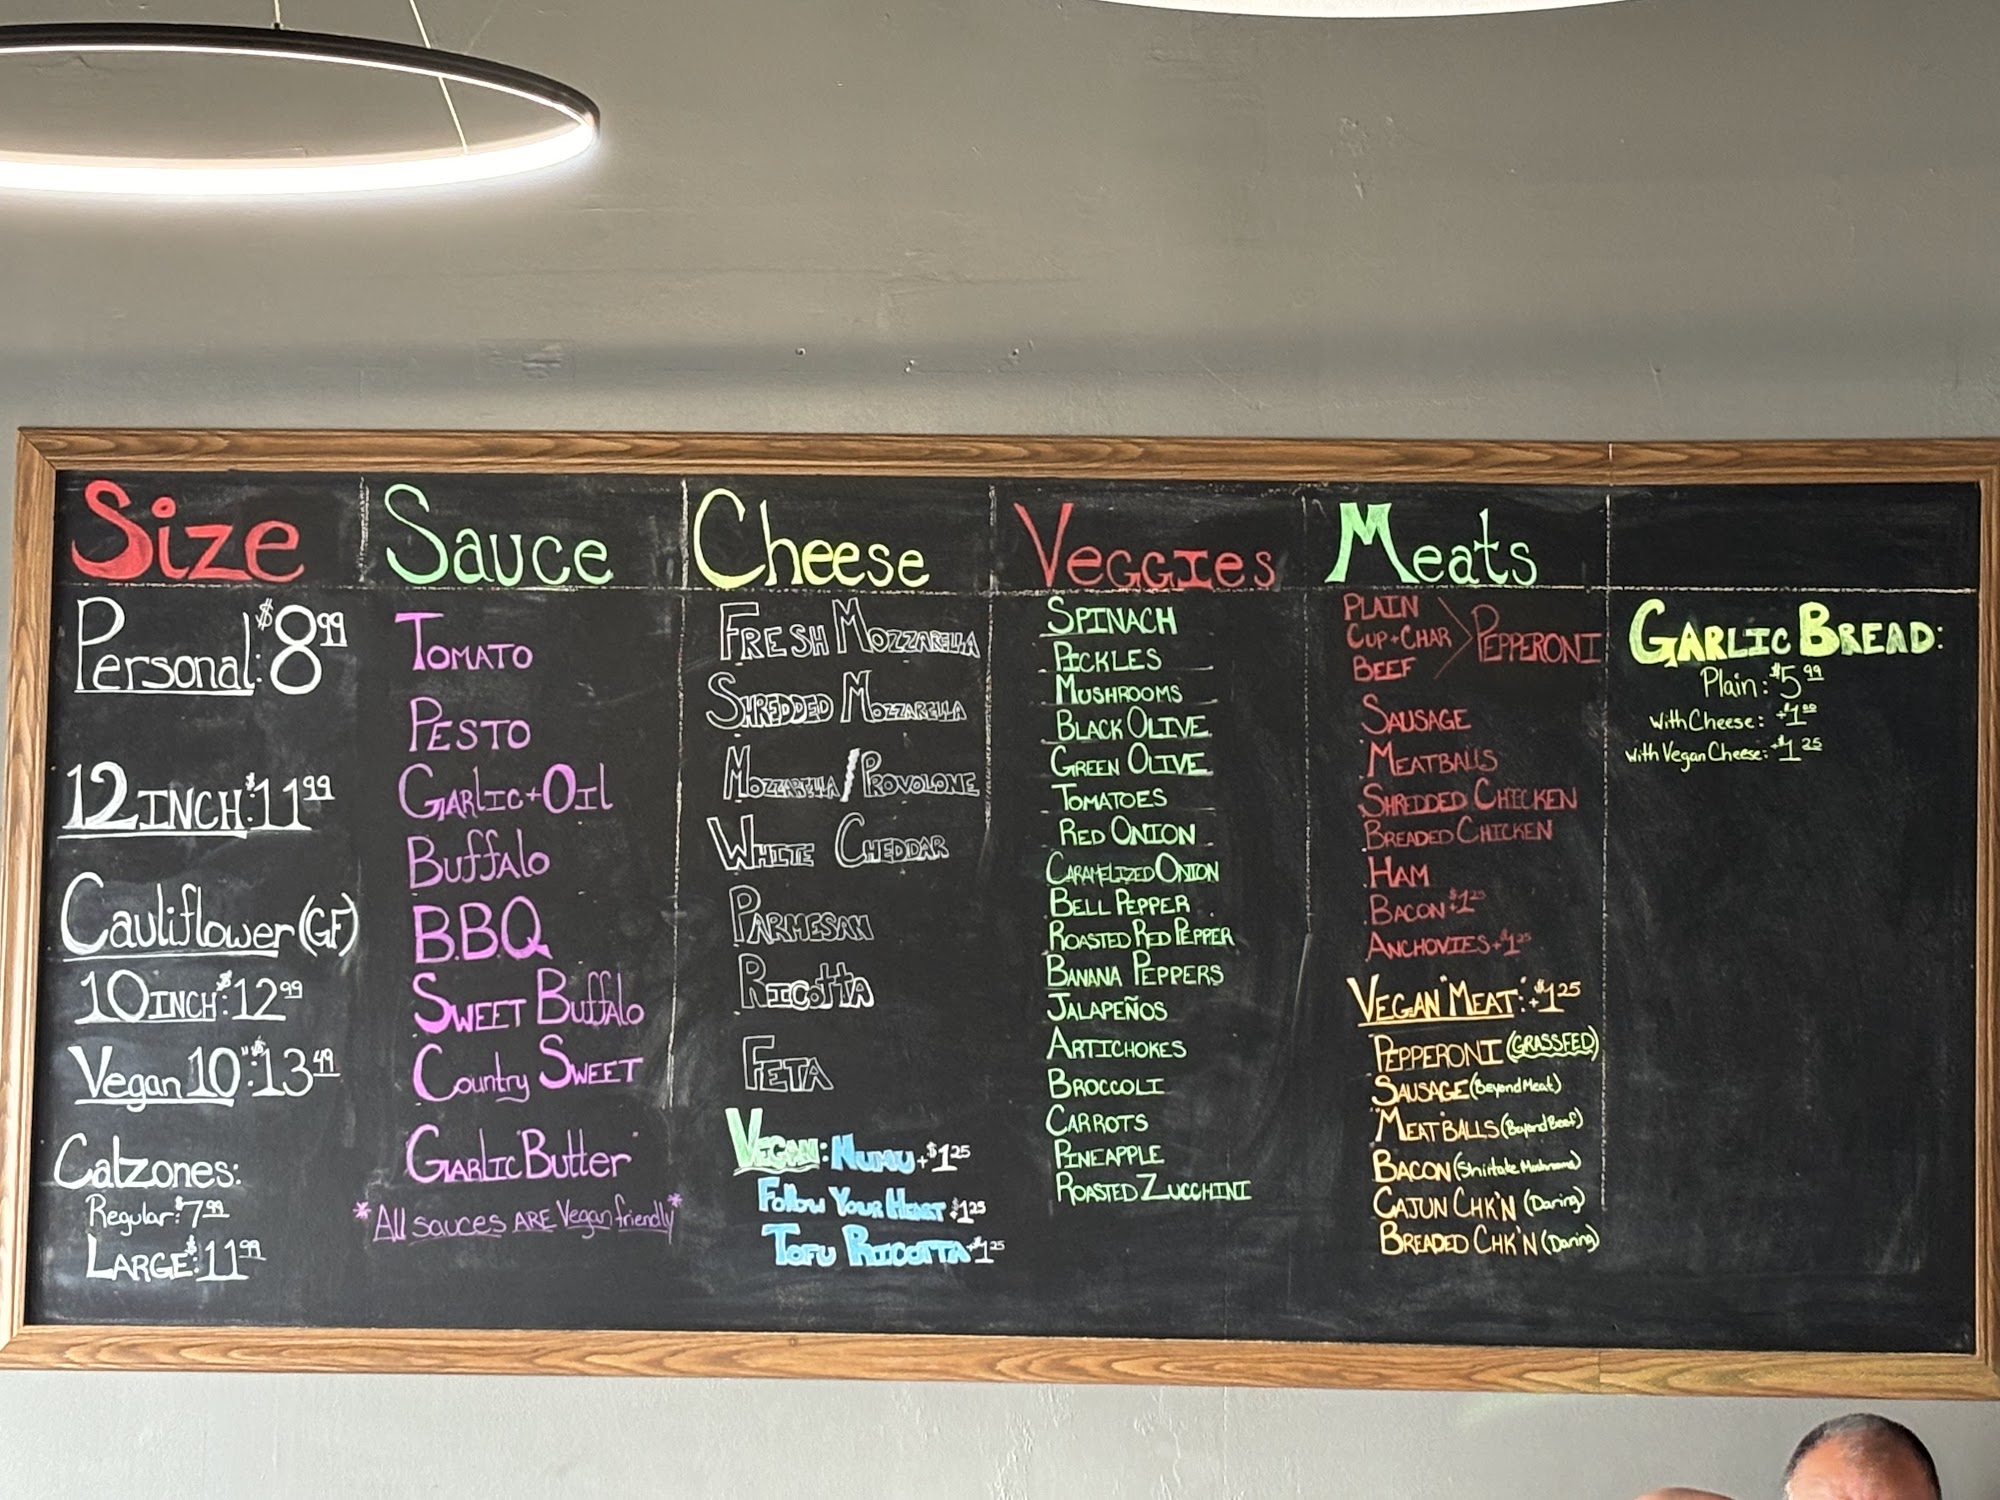 Size
Personal: $8.99
12 INCH: $11.99
Cauliflower (GF)
10 INCH: $12.99
Vegan 10": $13.49
Calzones:
Regular: $7.99
LARGE: $11.99
Sauce
TOMATO
PESTO
GARLIC + OIL
Buffalo
BBQ
SWEET Buffalo
Country SWEET
GARLIC Butter
*All sauces ARE Vegan friendly*
Cheese
FRESH MOZZARELLA
SHREDDED MOZZARELLA
MOZZARELLA/PROVOLONE
WHITE CHEDDAR
PARMESAN
RICOTTA
FETA
VEGAN: NUMU +$1.25
Follow Your Heart +$1.25
TOFU RICOTTA +$1.25
VEGGIES
SPINACH
PICKLES
MUSHROOMS
BLACK OLIVE
GREEN OLIVE
TOMATOES
RED ONION
CARAMELIZED ONION
BELL PEPPER
ROASTED RED PEPPER
BANANA PEPPERS
JALAPEÑOS
ARTICHOKES
BROCCOLI
CARROTS
PINEAPPLE
ROASTED ZUCCHINI
Meats
PLAIN
CUP + CHAR PEPPERONI
BEEF
SAUSAGE
MEATBALLS
SHREDDED CHICKEN
BREADED CHICKEN
HAM
BACON +$1.25
ANCHOVIES +$1.25
VEGAN "MEAT": +$1.25
PEPPERONI (GRASSFED)
SAUSAGE (Beyond Meat)
MEATBALLS (Beyond Beef)
BACON (Shiitake Mushrooms)
CAJUN CHK'N (Daring)
BREADED CHK'N (Daring)
GARLIC BREAD:
Plain: $5.99
With Cheese: +$1.00
With Vegan Cheese: +$1.25